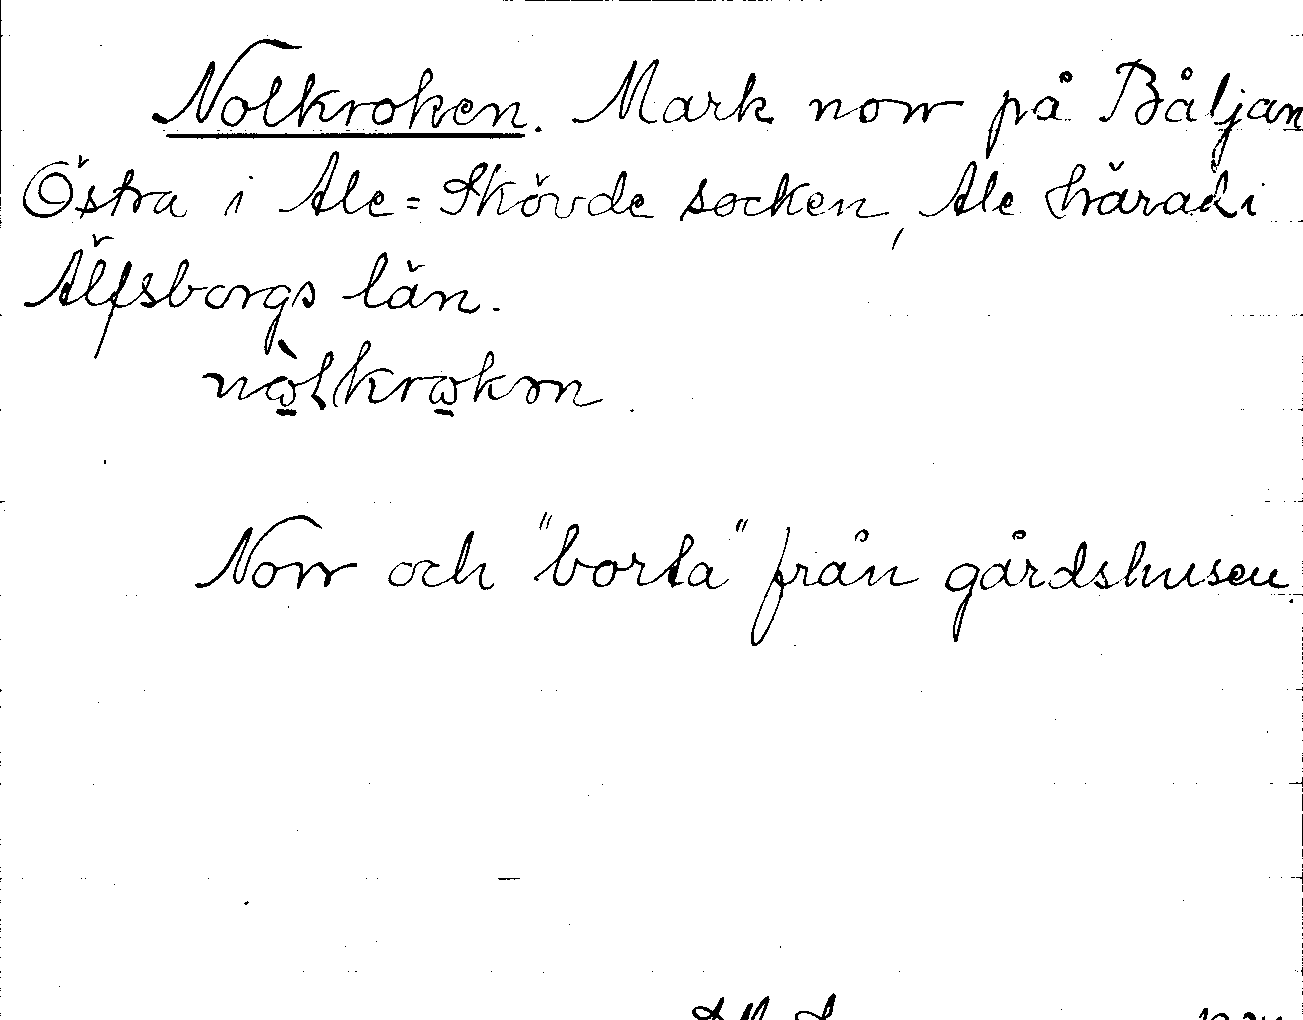 Nolkroken. Mark norr på Båljan
Östra i Ale-Skövde socken, Ale härad i
Älfsborgs län.
nòlkrokən
Norr och "borta" från gårdshusen.